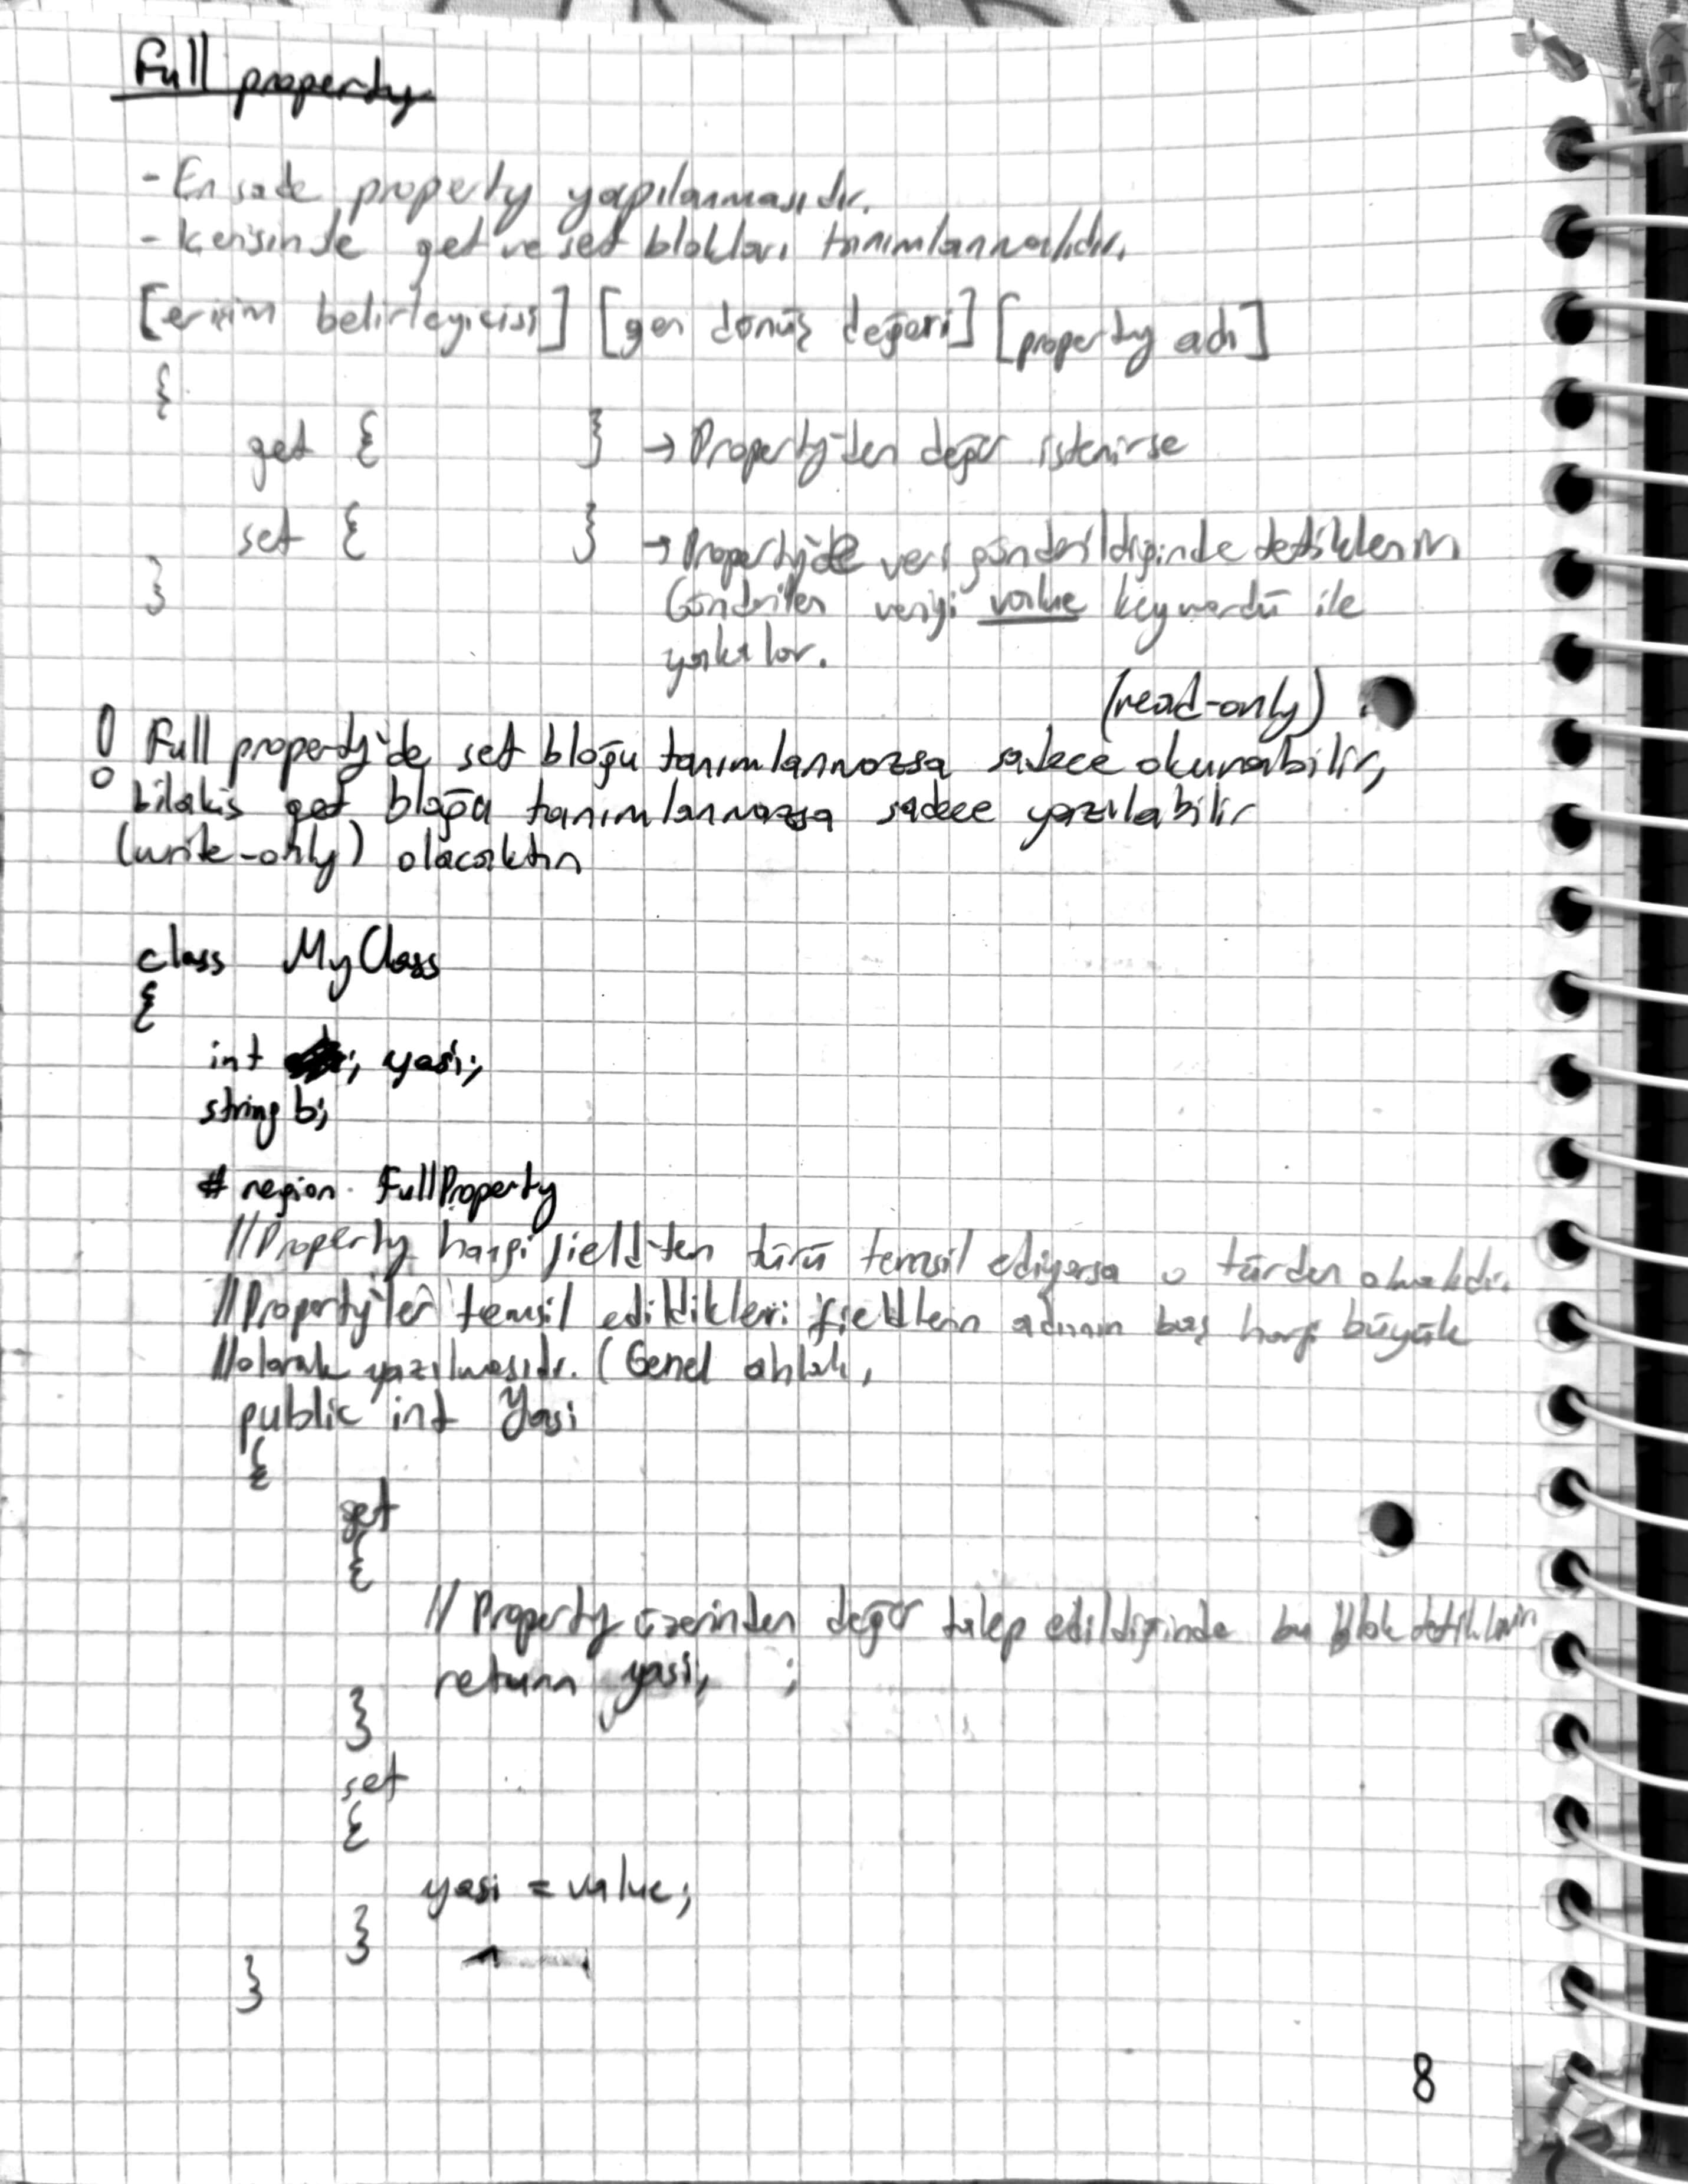 Full property
- En sade property yapılanmasıdır.
- İçerisinde get ve set blokları tanımlanmalıdır.
[erişim belirleyicisi] [geri dönüş değeri] [property adı]
{
get { } → Property'den değer istenirse
set { } → Property'de veri gönderildiğinde tetiklenir
Gönderilen veriyi value keywordü ile
yakalar.
(read-only)
! Full property'de set bloğu tanımlanmazsa sadece okunabilir,
bilakis get bloğu tanımlanmazsa sadece yazılabilir
(write-only) olacaktır
class MyClass
{
int ; yasi;
string b;
# region FullProperty
//Property hangi field'ten türü temsil ediyorsa o türden olmalıdır.
//Property'ler temsil edildikleri fieldlerin adının baş harfi büyük
//olarak yazılmasıdır. (Genel ahlak,
public int Yasi
{
get
{
// Property üzerinden değer talep edildiğinde bu blok tetiklenir
return yasi; ;
}
set
{
yasi = value;
}
}
8